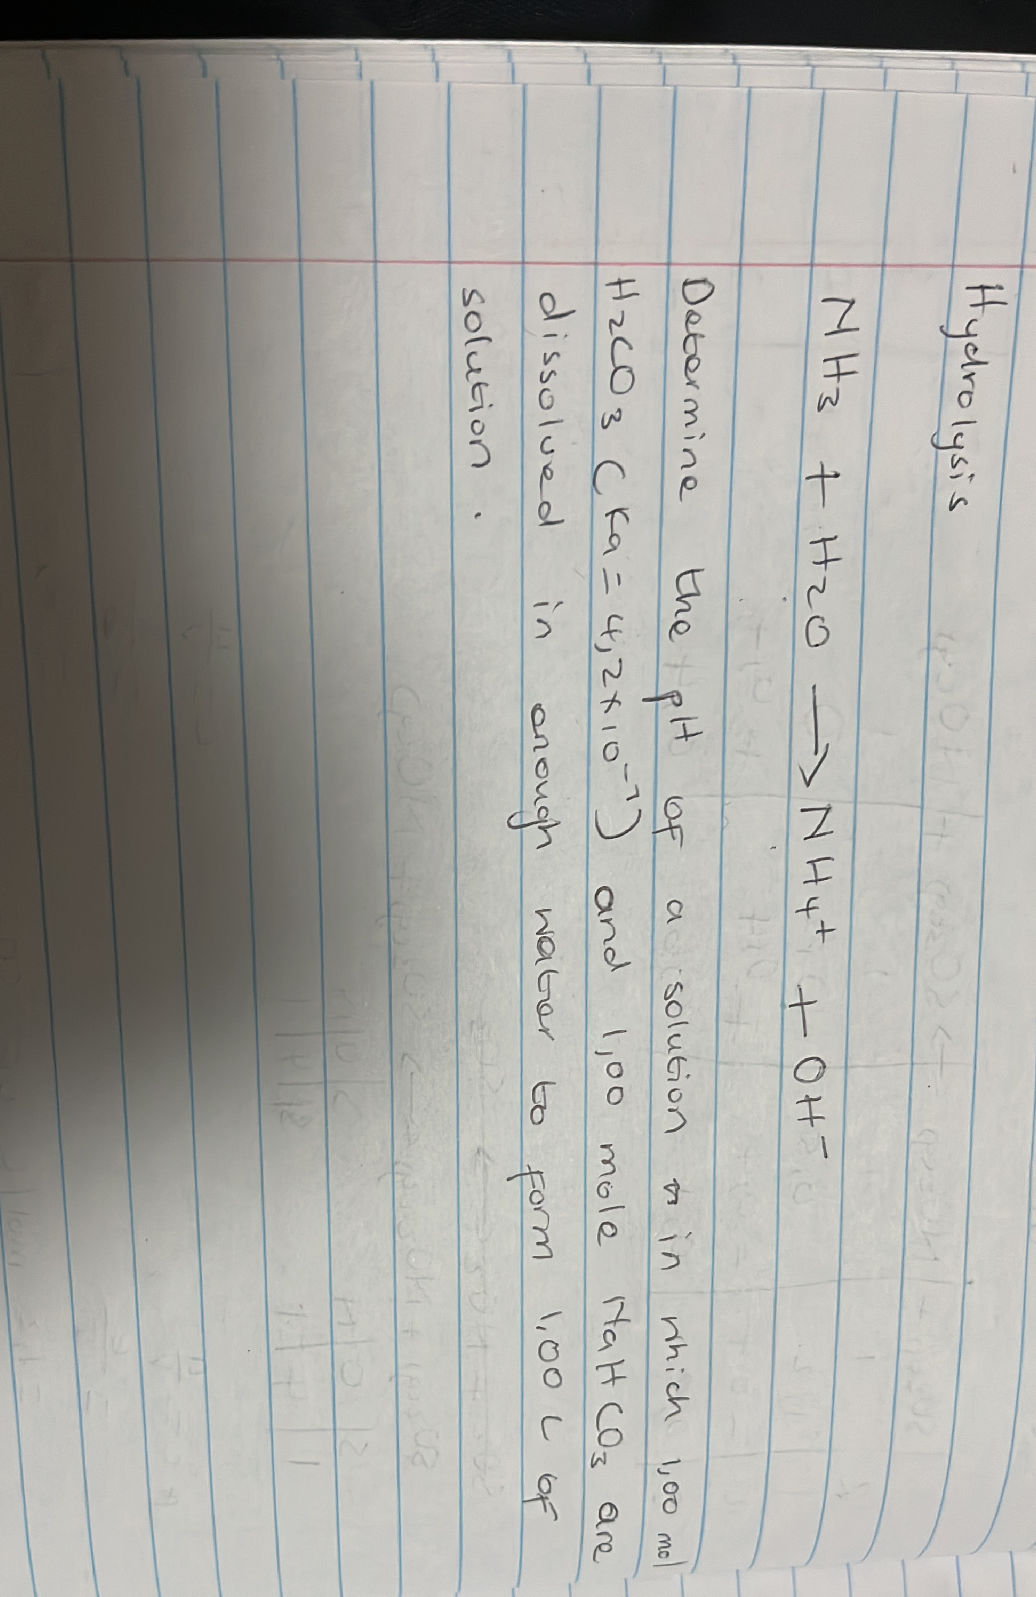 Hydrolysis
NH3 + H2O → NH4+ + OH-
Determine the pH of a solution in which 1,00 mol
H2CO3 (Ka = 4,2×10-7) and 1,00 mole NaHCO3 are
dissolved in enough water to form 1,00 L of
solution.